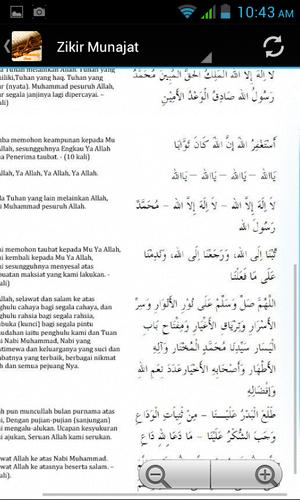 10:43 AM
Zikir Munajat
Tuhan melainkan Allah. Tuhan yang
miliki,Tuhan yang haq. Tuhan yang
ar (nyata). Muhammad pesuruh Allah,
ar segala janjinya lagi dipercayai. –
ali)
ba memohon keampunan kepada Mu
Allah, sesungguhnya Engkau Ya Allah
a Penerima taubat. - (10 kali)
llah, Ya Allah, Ya Allah, Ya Allah.
da Tuhan yang lain melainkan Allah,
i Muhammad pesuruh Allah.
ni memohon taubat kepada Mu Ya Allah,
i kembali kepada Mu Ya Allah,
i sesungguhnya menyesal atas
uatan maksiat yang kami lakukan. -
ali)
llah, selawat dan salam ke atas
ghulu cahaya bagi segala cahaya, dan
ghulu rahsia bagi segala rahsia,
buka (kunci) bagi segala pintu
udahan iaitu penghulu kami dan Tuan
i Nabi Muhammad, Nabi yang
timewa dan keluarganya yang suci dan
abatnya yang terbaik, berbagai nikmat
ah dan semua pejuang Nya.
ah pun muncullah bulan purnama atas
i, Dengan pujian-pujian (sanjungan)
i mengalu-alukan. Ucapan kesyukuran
i ajukan, Seruan Allah kami serukan.
wat Allah ke atas Nabi Muhammad.
at Allah ke atasnya beserta salam. –
li)
لَا إِلَهَ إِلاَّ اللهُ الْمَلِكُ الْحَقُّ الْمُبِيْنُ مُحَمَّدٌ
رَسُوْلُ اللهِ صَادِقُ الْوَعْدِ الْأَمِيْنِ
أَسْتَغْفِرُ اللهَ إِنَّ اللهَ كَانَ تَوَّابًا
يَااللهُ – يَااللهُ – يَااللهُ – يَااللهُ
لَا إِلَهَ إِلاَّ اللهُ – لَا إِلَهَ إِلاَّ اللهُ – مُحَمَّدٌ
رَسُوْلُ اللهِ
تُبْنَا إِلَى اللهِ، وَرَجَعْنَا إِلَى اللهِ، وَنَدِمْنَا
عَلَى مَا فَعَلْنَا
اللَّهُمَّ صَلِّ وَسَلِّمْ عَلَى نُوْرِ الْأَنْوَارِ وَسِرِّ
الْأَسْرَارِ وَتِرْيَاقِ الْأَغْيَارِ وَمِفْتَاحِ بَابِ
الْيَسَارِ سَيِّدِنَا مُحَمَّدٍ الْمُخْتَارِ وَآلِهِ
الْأَطْهَارِ وَأَصْحَابِهِ الْأَخْيَارِ عَدَدَ نِعَمِ اللهِ
وَإِفْضَالِهِ
طَلَعَ الْبَدْرُ عَلَيْنَا – مِنْ ثَنِيَّاتِ الْوَدَاعِ
وَجَبَ الشُّكْرُ عَلَيْنَا – مَا دَعَا لِلهِ دَاعِ